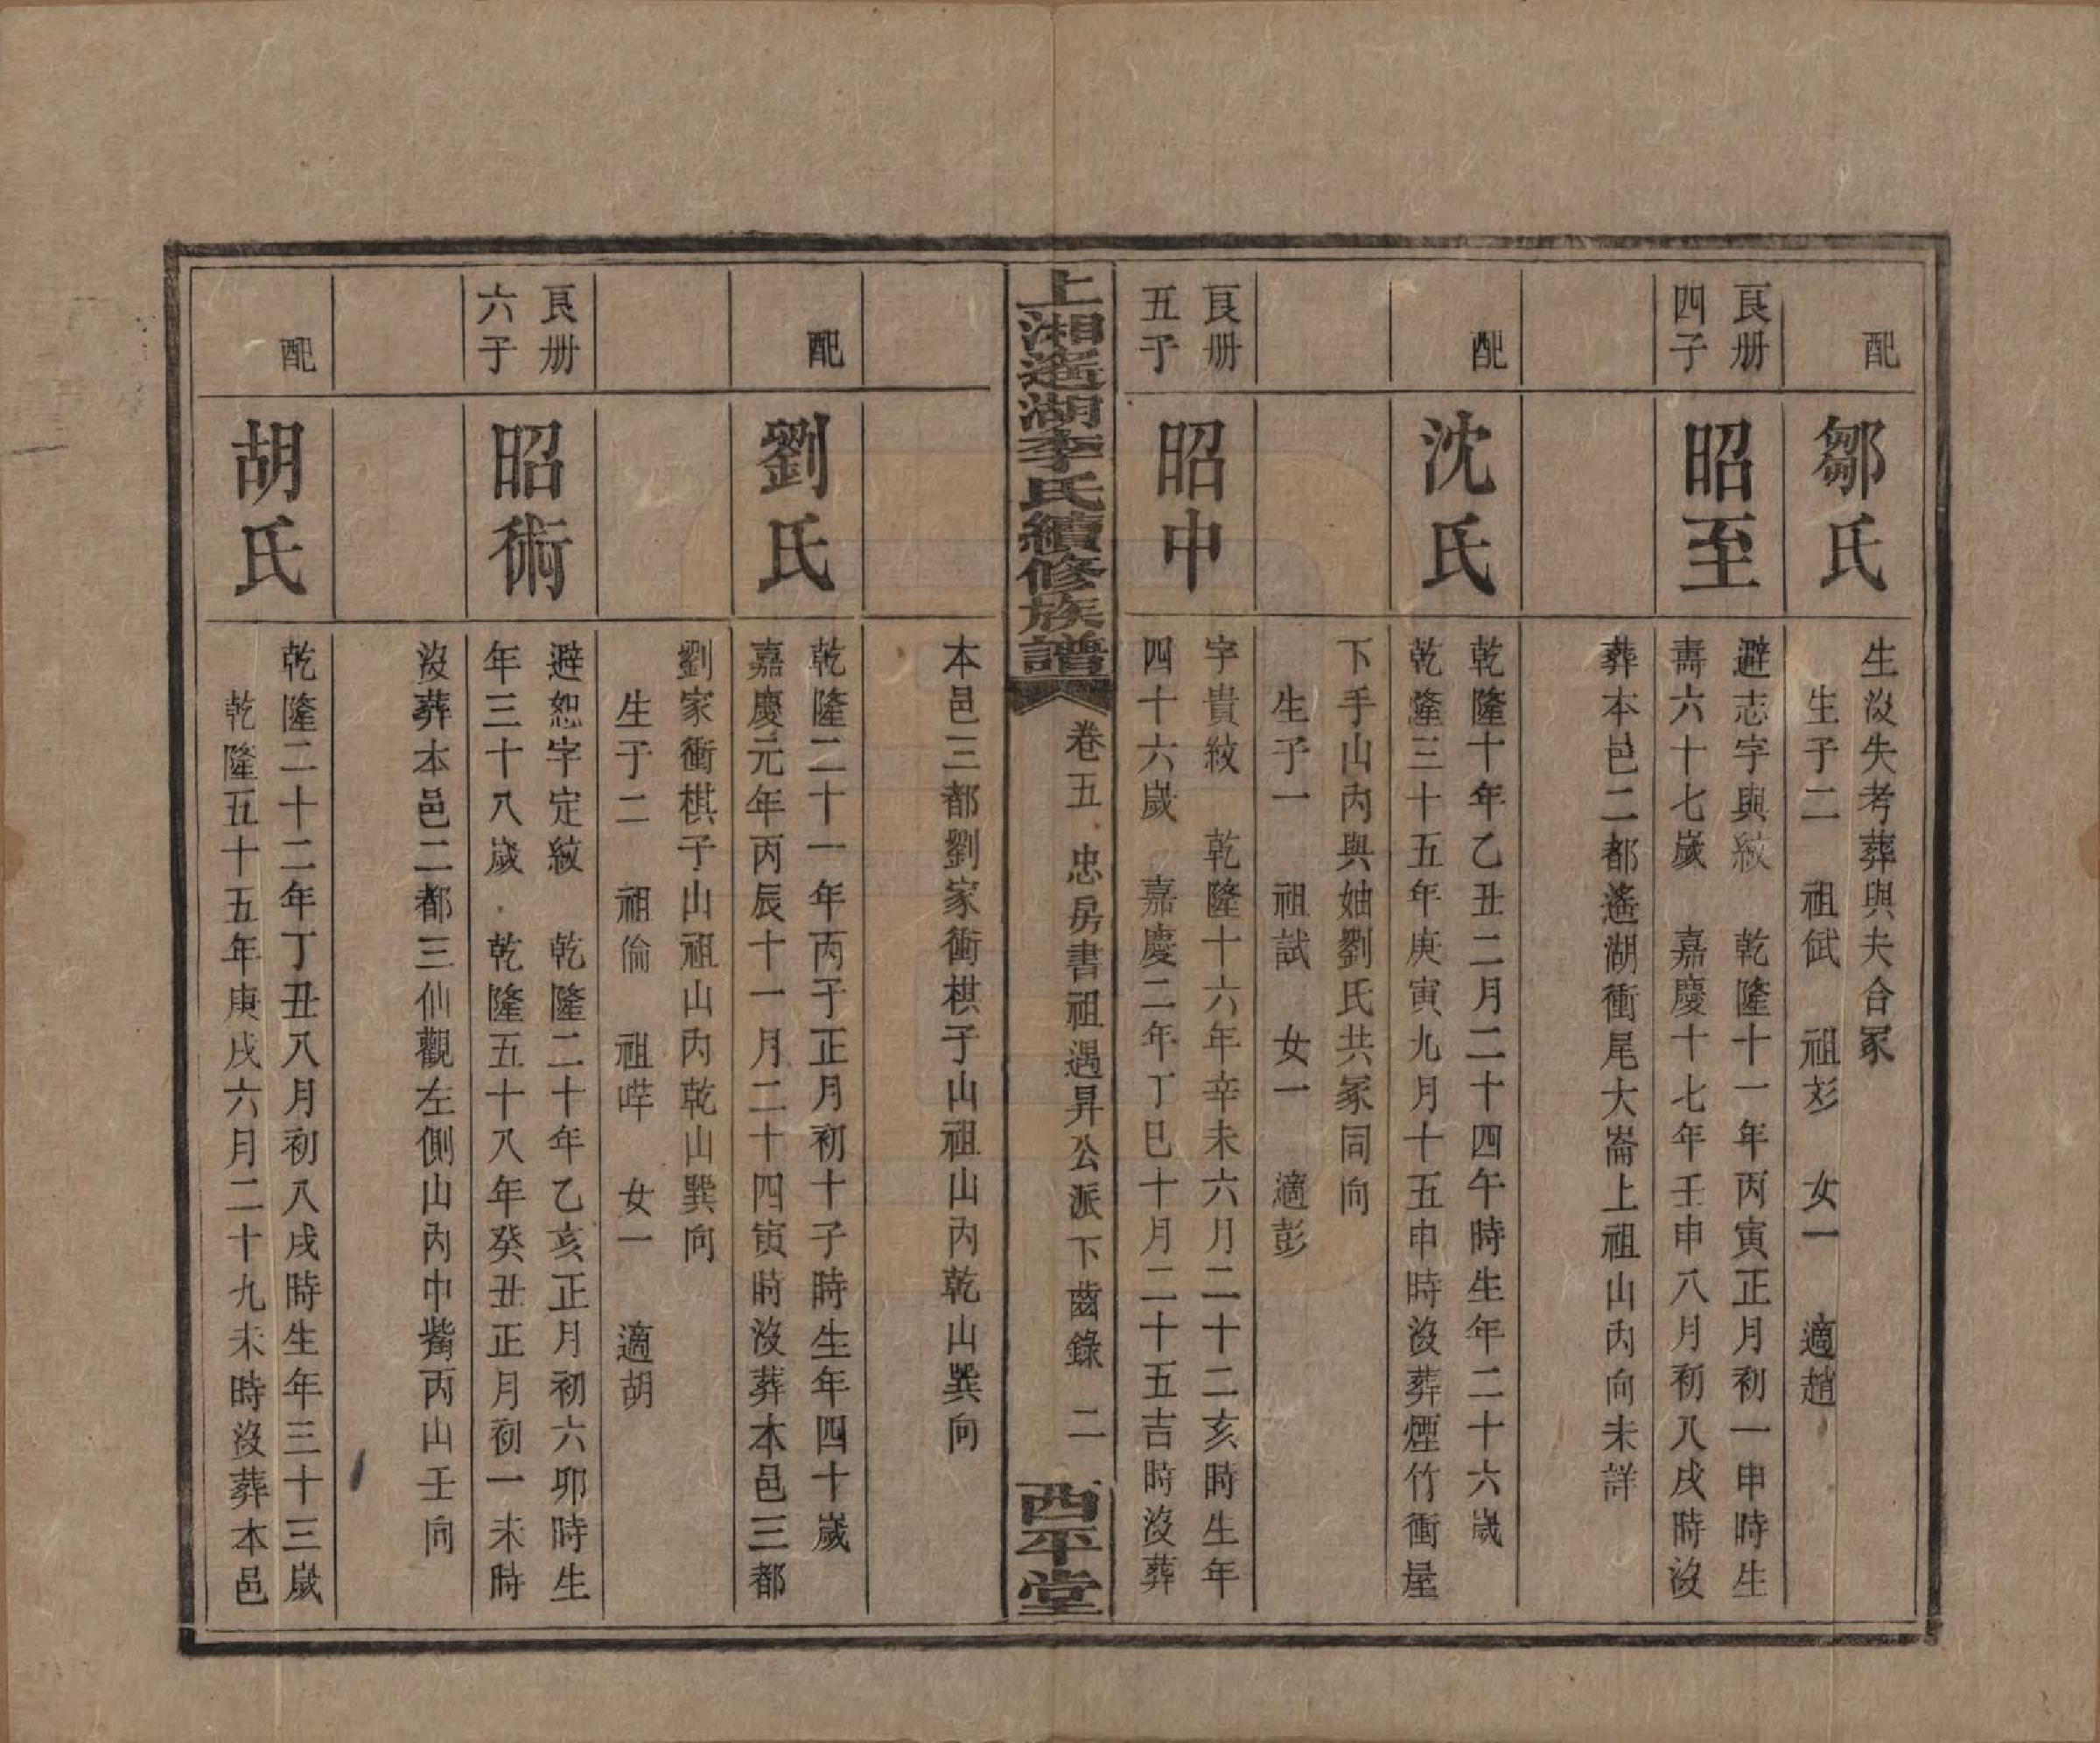 配
鄒氏
生沒失考葬與夫合冢
生子二　祖斌　祖彣　女一　適趙
良册
四子
昭至
避志字與紋　乾隆十一年丙寅正月初一申時生
壽六十七歲　嘉慶十七年壬申八月初八戌時沒
葬本邑二都遙湖衝尾大崙上祖山內向未詳
配
沈氏
乾隆十年乙丑二月二十四午時生年二十六歲
乾隆三十五年庚寅九月十五申時沒葬煙竹衝屋
下手山內與妯劉氏共冢同向
生子一　祖試　女一　適彭
良册
五子
昭中
字貴紋　乾隆十六年辛未六月二十二亥時生年
四十六歲　嘉慶二年丁巳十月二十五吉時沒葬
上湘遙湖李氏續修族譜
卷五　忠房書祖遇昇公派下齒錄　二
西平堂
本邑三都劉家衝棋子山祖山內乾山巽向
配
劉氏
乾隆二十一年丙子正月初十子時生年四十歲
嘉慶元年丙辰十一月二十四寅時沒葬本邑三都
劉家衝棋子山祖山內乾山巽向
生子二　祖倫　祖哶　女一　適胡
良册
六子
昭術
避恕字定紋　乾隆二十年乙亥正月初六卯時生
年三十八歲　乾隆五十八年癸丑正月初一未時
沒葬本邑二都三仙觀左側山內中嘴丙山壬向
配
胡氏
乾隆二十二年丁丑八月初八戌時生年三十三歲
乾隆五十五年庚戌六月二十九未時沒葬本邑